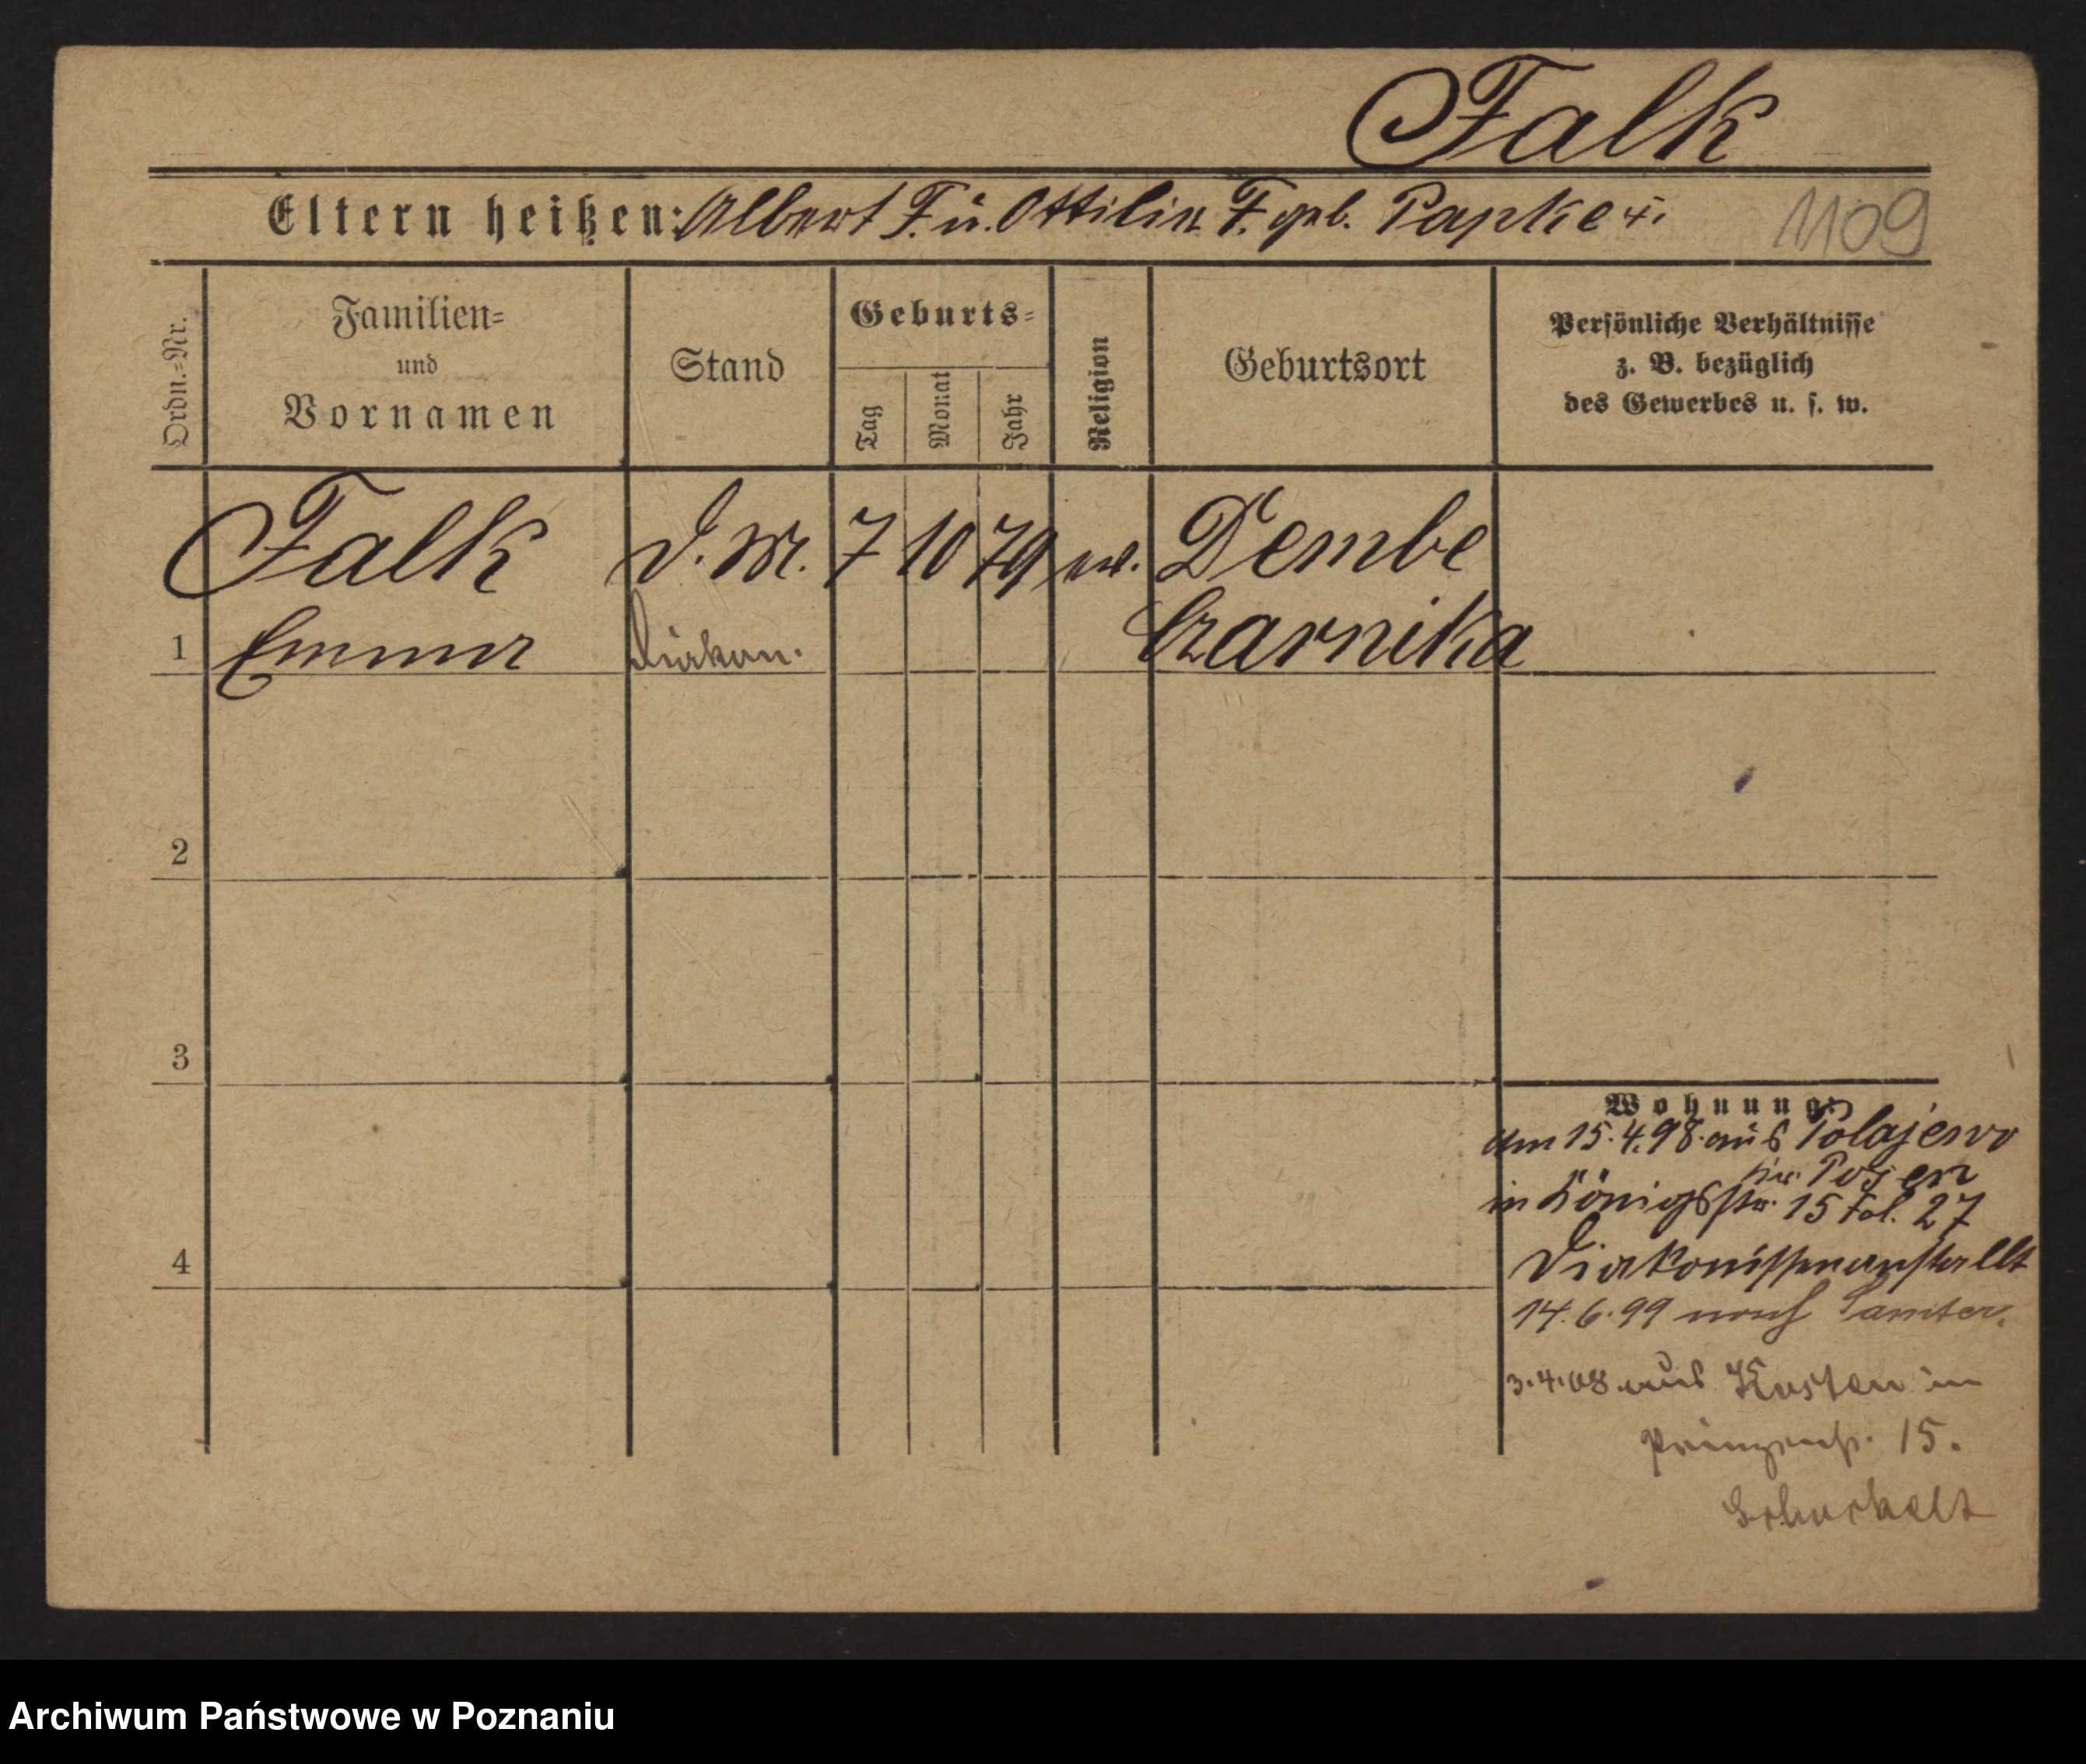 Falk
Eltern heißen: Albert F. u. Ottilie F. geb. Papke
1109
Ordn.=Nr.
Familien=
und
Vornamen
Stand
Geburts=
Tag
Monat
Jahr
Religion
Geburtsort
Persönliche Verhältnisse
z. B. bezüglich
des Gewerbes u. s. w.
Falk D. M. 7 10 79 ev. Dembe
1 Emma Diakon. Czarnika
2
3
4
Wohnung:
Am 15.4.98. aus Polajewo
Posen
in Königsstr. 15 Fol. 27
Diakonissenanstallt
14.6.99 nach Samter.
3.4.08 aus Kosten in
Prinzenstr. 15.
Archiwum Państwowe w Poznaniu